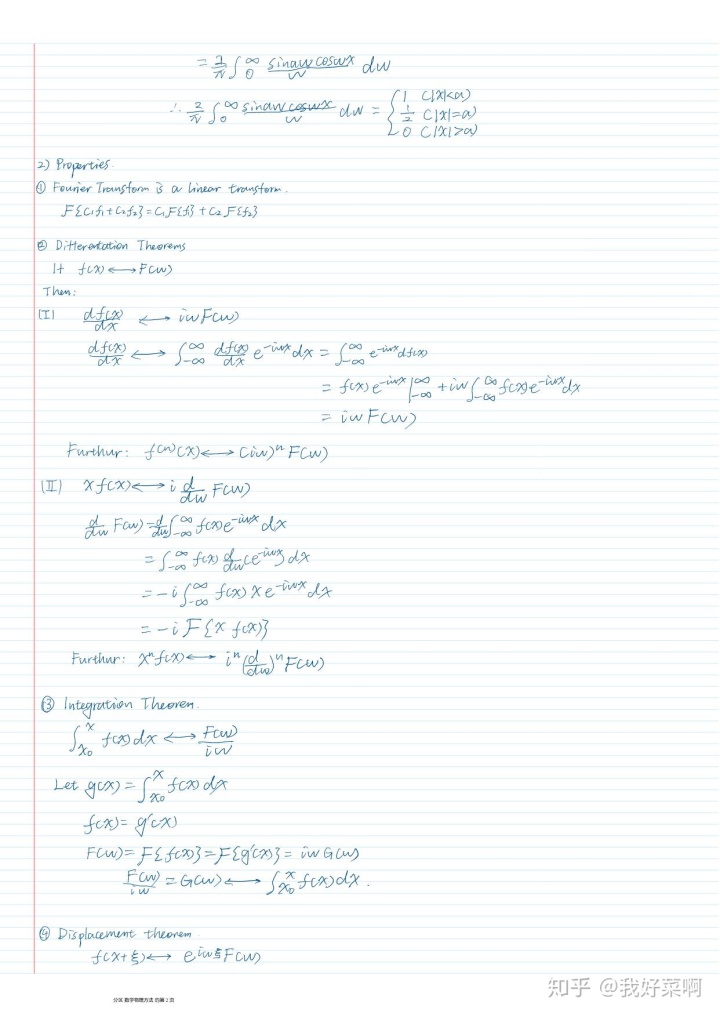 = 2/π ∫₀^∞ sinaw coswx / w dw
∴ 2/π ∫₀^∞ sinaw coswx / w dw = { 1 (|x|<a)
1/2 (|x|=a)
0 (|x|>a)
2) Properties.
① Fourier Transform is a linear transform.
F{c₁f₁+c₂f₂}=c₁F{f₁}+c₂F{f₂}
② Differentation Theorems
If f(x)⟷F(w)
Then:
(I) df(x)/dx ⟷ iwF(w)
df(x)/dx ⟷ ∫_{-∞}^{∞} df(x)/dx e^{-iwx}dx = ∫_{-∞}^{∞} e^{-iwx}df(x)
= f(x)e^{-iwx}|_{-∞}^{∞} + iw∫_{-∞}^{∞} f(x)e^{-iwx}dx
= iwF(w)
Furthur: f^{(n)}(x)⟷(iw)ⁿF(w)
(II) xf(x)⟷i d/dw F(w)
d/dw F(w)=d/dw∫_{-∞}^{∞} f(x)e^{-iwx}dx
=∫_{-∞}^{∞} f(x) d/dw(e^{-iwx})dx
=-i∫_{-∞}^{∞} f(x)xe^{-iwx}dx
=-iF{xf(x)}
Furthur: xⁿf(x)⟷iⁿ(d/dw)ⁿF(w)
③ Integration Theorem.
∫_{x₀}^{x} f(x)dx⟷F(w)/iw
Let g(x)=∫_{x₀}^{x} f(x)dx
f(x)=g'(x)
F(w)=F{f(x)}=F{g'(x)}=iwG(w)
F(w)/iw=G(w)⟷∫_{x₀}^{x} f(x)dx.
④ Displacement theorem
f(x+ξ)⟷e^{iwξ}F(w)
分区 数学物理方法 的第 2 页
知乎 @我好菜啊